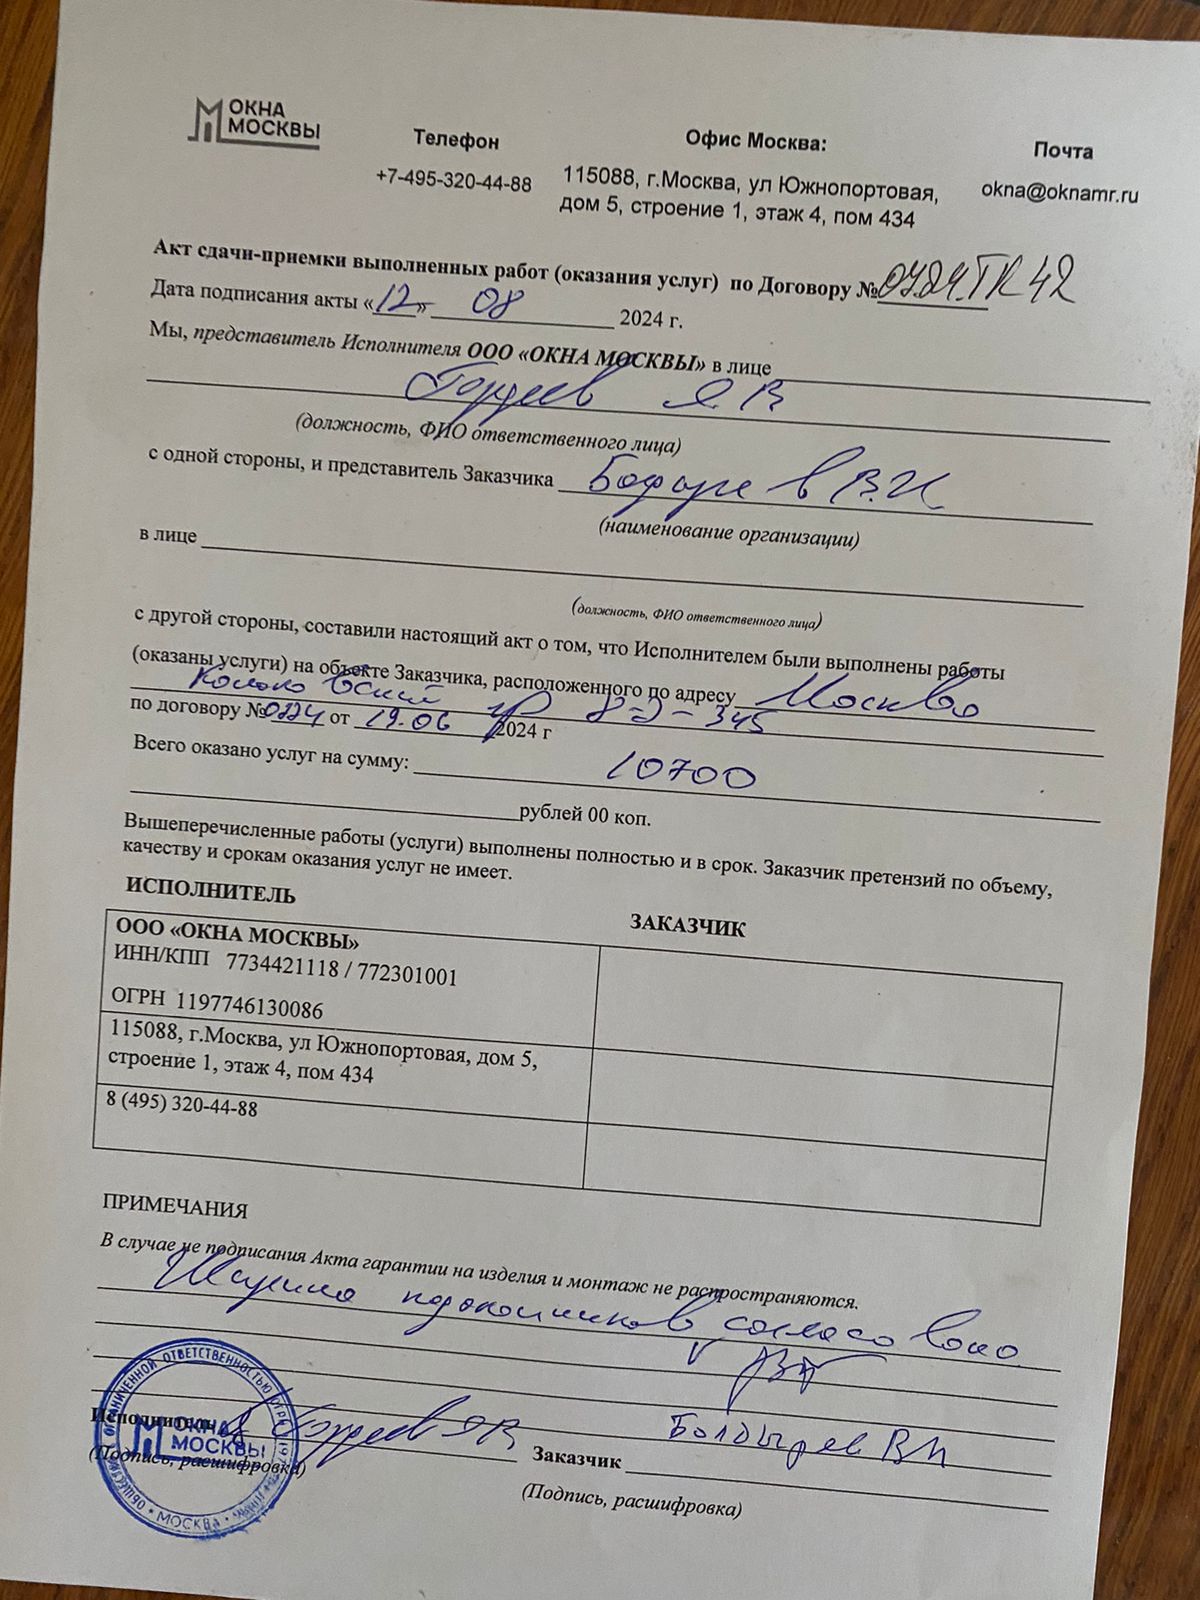 ОКНА
МОСКВЫ
Телефон
+7-495-320-44-88
Офис Москва:
115088, г.Москва, ул Южнопортовая,
дом 5, строение 1, этаж 4, пом 434
Почта
okna@oknamr.ru
Акт сдачи-приемки выполненных работ (оказания услуг) по Договору №
Дата подписания акты «12» 08 2024 г.
Мы, представитель Исполнителя ООО «ОКНА МОСКВЫ» в лице
Гордеев Я В
(должность, ФИО ответственного лица)
с одной стороны, и представитель Заказчика
(наименование организации)
в лице
(должность, ФИО ответственного лица)
с другой стороны, составили настоящий акт о том, что Исполнителем были выполнены работы
(оказаны услуги) на объекте Заказчика, расположенного по адресу Москва
8-2-345
по договору № от 19.06 2024 г
Всего оказано услуг на сумму: 10700
рублей 00 коп.
Вышеперечисленные работы (услуги) выполнены полностью и в срок. Заказчик претензий по объему,
качеству и срокам оказания услуг не имеет.
ИСПОЛНИТЕЛЬ
ЗАКАЗЧИК
ООО «ОКНА МОСКВЫ»
ИНН/КПП 7734421118 / 772301001
ОГРН 1197746130086
115088, г.Москва, ул Южнопортовая, дом 5,
строение 1, этаж 4, пом 434
8 (495) 320-44-88
ПРИМЕЧАНИЯ
В случае не подписания Акта гарантии на изделия и монтаж не распространяются.
Ширина подоконников согласована
Исполнитель Гордеев ЯВ
(Подпись, расшифровка)
Болдырев ВИ
Заказчик
(Подпись, расшифровка)
ОКНА
МОСКВЫ
МОСКВА